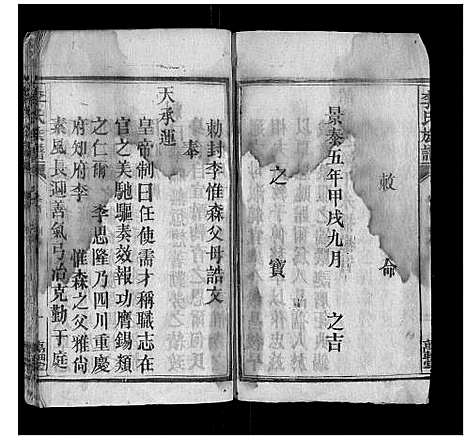 李氏族譜
敕命
景泰五年甲戌九月 之吉
之寶
勅封李惟森父母誥文
奉
天承運
皇帝制曰任使需才稱職志在
官之美馳驅奏效報功膺錫類
之仁爾 李思隆乃四川重慶
府知府李 惟森之父雅尚
素風長迎善氣弓冶克勤于庭